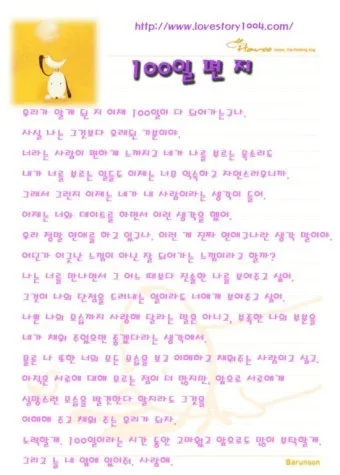 http://www.lovestory1004.com/
100일 편지
우리가 알게 된 지 이제 100일이 다 되어가는구나.
사실 나는 그것보다 오래된 기분이야.
너라는 사람이 편하게 느껴지고 네가 나를 부르는 목소리도
내가 너를 부르는 일들도 이제는 너무 익숙하고 자연스러우니까.
그래서 그런지 이제는 네가 내 사람이라는 생각이 들어.
어제는 너와 데이트를 하면서 이런 생각을 했어.
우리 정말 연애를 하고 있구나, 이런 게 진짜 연애구나란 생각 말이야.
어딘가 이긋난 느낌이 아닌 잘 되어가는 느낌이라고 할까?
나는 너를 만나면서 그 어느 때보다 진솔한 나를 보여주고 싶어.
그것이 나의 단점을 드러내는 일이라도 너에게 보여주고 싶어.
나쁜 나의 모습까지 사랑해 달라는 말은 아니고, 부족한 나의 부분을
네가 채워 주었으면 좋겠다라는 생각에서.
물론 나 또한 너의 모든 모습을 보고 이해하고 채워주는 사람이고 싶고.
아직은 서로에 대해 모르는 점이 더 많지만, 앞으로 서로에게
실망스런 모습을 발견한다 할지라도 그것을
이해해 주고 채워 주는 우리가 되자.
노력할게. 100일이라는 시간 동안 고마웠고 앞으로도 많이 부탁할게.
그리고 늘 내 옆에 있어줘. 사랑해.
Barunson